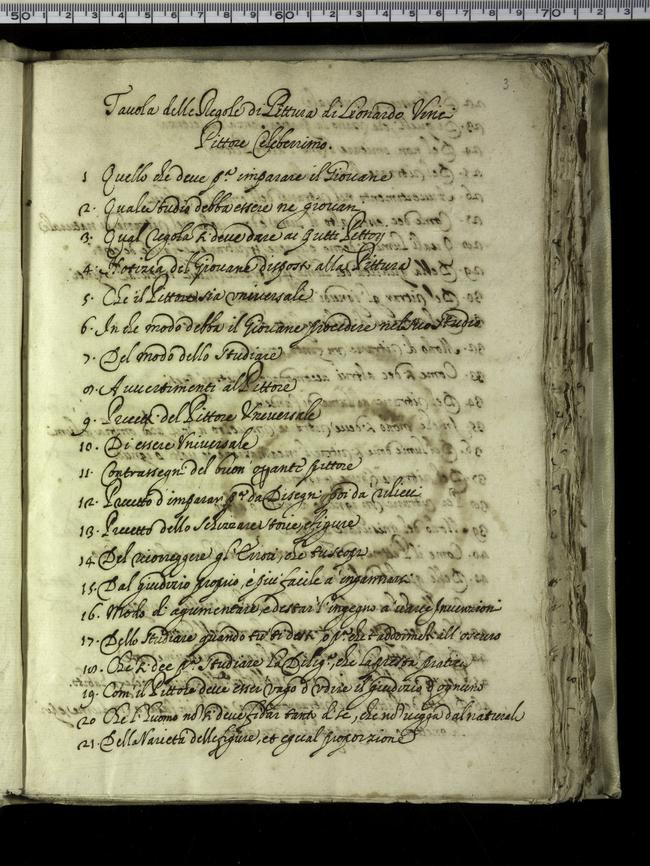 50 1 2 3 4 5 6 7 8 9 60 1 2 3 4 5 6 7 8 9 70 1 2 3
3
Tavola delle Regole di Pittura di Leonardo Vinci
Pittore Celeberrimo.
1 Quello che deve p.ª imparare il Giovane
2. Quale studio debba essere ne giovani
3. Qual regola si deve dare ai Putti Pittori
4. Notizia del Giovane disposto alla Pittura
5. Che il Pittore sia universale
6. In che modo debba il Giovane procedere nel suo studio
7. Del modo dello studiare
8. Avvertimenti al Pittore
9. Precetti del Pittore Universale
10. Di essere Universale
11. Contrassegni del buon pittore
12. Precetto d'imparar p.ª da Disegni poi da rilievi
13. Precetto dello Schizzare storie, e figure
14. Del ricorreggere gl'Errori, che tu scopri
15. Dal giudizio proprio, è più facile à ingannarsi
16. Modo di agumentare, e destar l'ingegno a varie Invenzioni
17. Dello studiare quando tu ti desti, o p.ª che t'addormenti all'oscuro
18. Che si dee p.ª Studiare La Dilig.ª, che La presta pratica
19. Com il Pittore deve esser vago d'udire il giudizio d'ognuno
20 Che l'Huomo nō si deve fidar tanto di se, che nō vegga dal naturale
21. Della Varietà delle figure, et egual proporzione